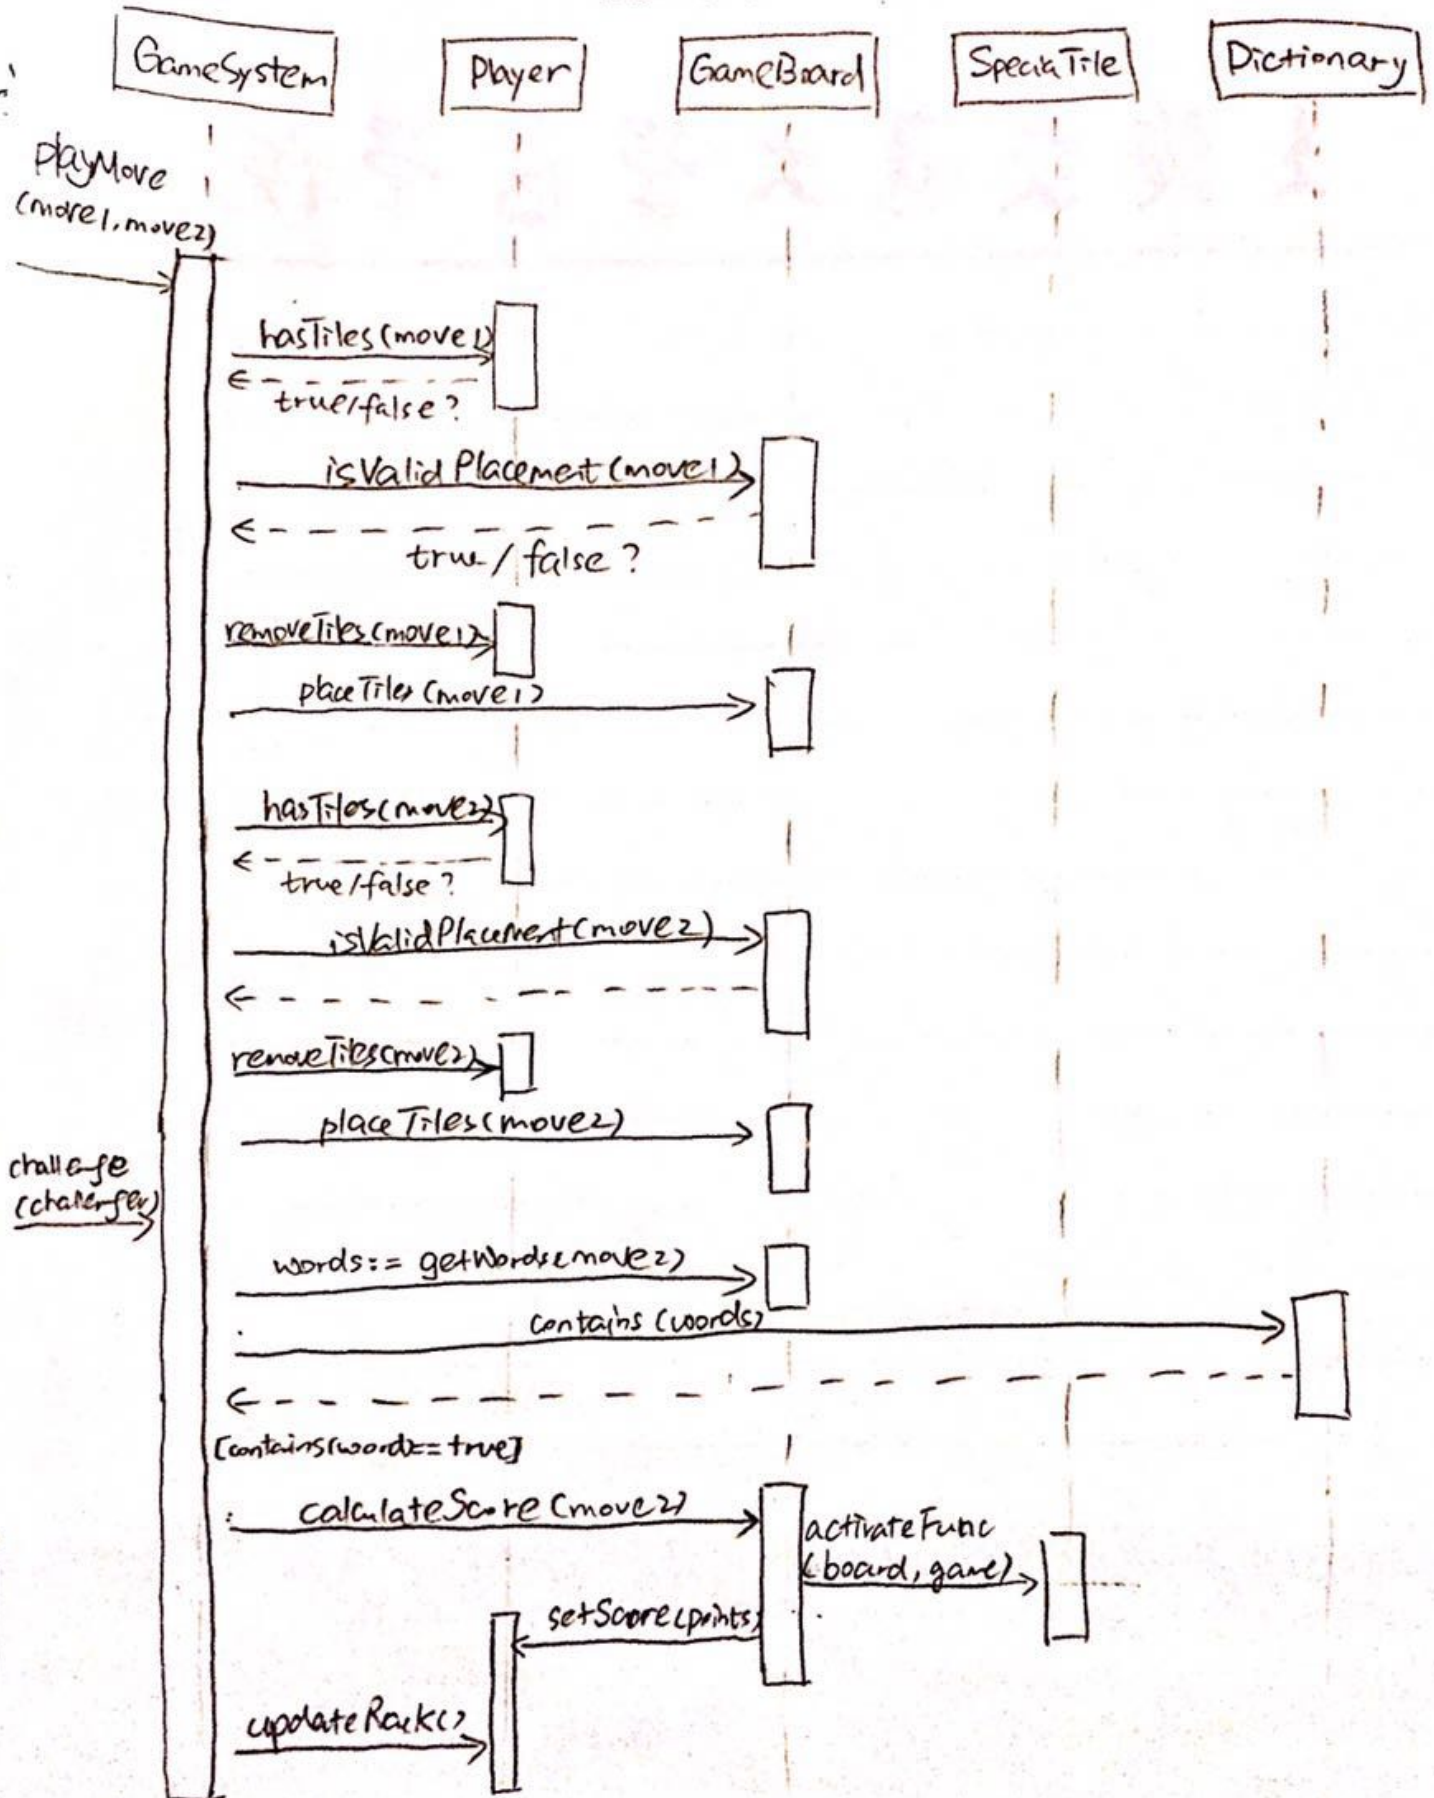 GameSystem
Player
GameBoard
SpeciaTile
Dictionary
playMove
(move1, move2)
hasTiles(move1)
true/false ?
isValidPlacement (move1)
true/false ?
removeTiles(move1)
placeTiles (move1)
hasTiles(move2)
true/false ?
isValidPlacement(move2)
removeTiles(move2)
placeTiles(move2)
challenge
(challenger)
words:= getWords(move2)
contains (words)
[contains(word)==true]
calculateScore (move2)
activateFunc
(board, game)
setScore(points)
updateRack()